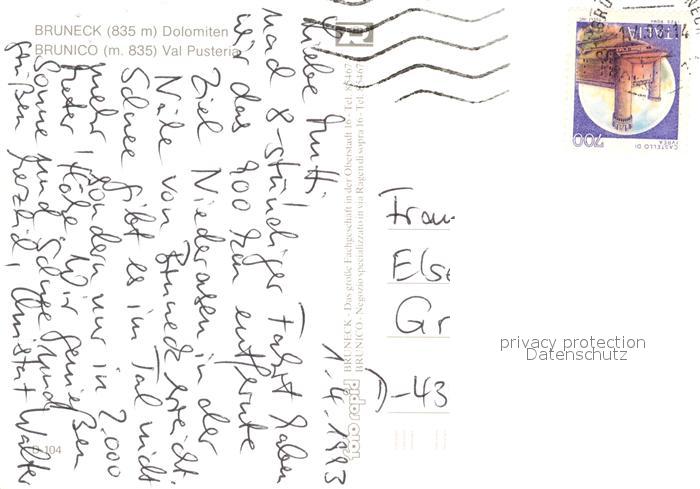 BRUNECK (835 m) Dolomiten
BRUNICO (m. 835) Val Pusteria
1.4.1993
Liebe Mutti,
nach 8-stündiger Fahrt haben
wir das 900 km entfernte
Ziel Niederrasen in der
Nähe von Bruneck erreicht.
Schnee gibt es im Tal nicht
mehr sondern nur in 2.000
Meter Höhe. Wir genießen
Sonne und Schnee und
grüßen herzlich, Walter
BRUNECK - Das große Fachgeschäft in der Oberstadt 16 - Tel. 85467
BRUNICO - Negozio specializzato in via Ragen di sopra 16 - Tel. 85467
foto rapid
D-104
ITALIA
CASTELLO DI
IVREA
700
Frau
Else
Gr
D-43
privacy protection
Datenschutz